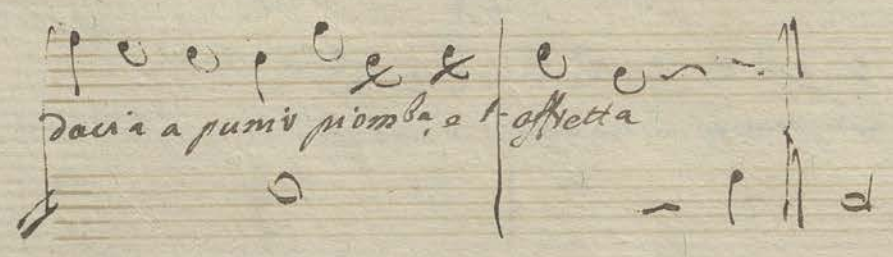 dacia a punir piomba, e t'affretta